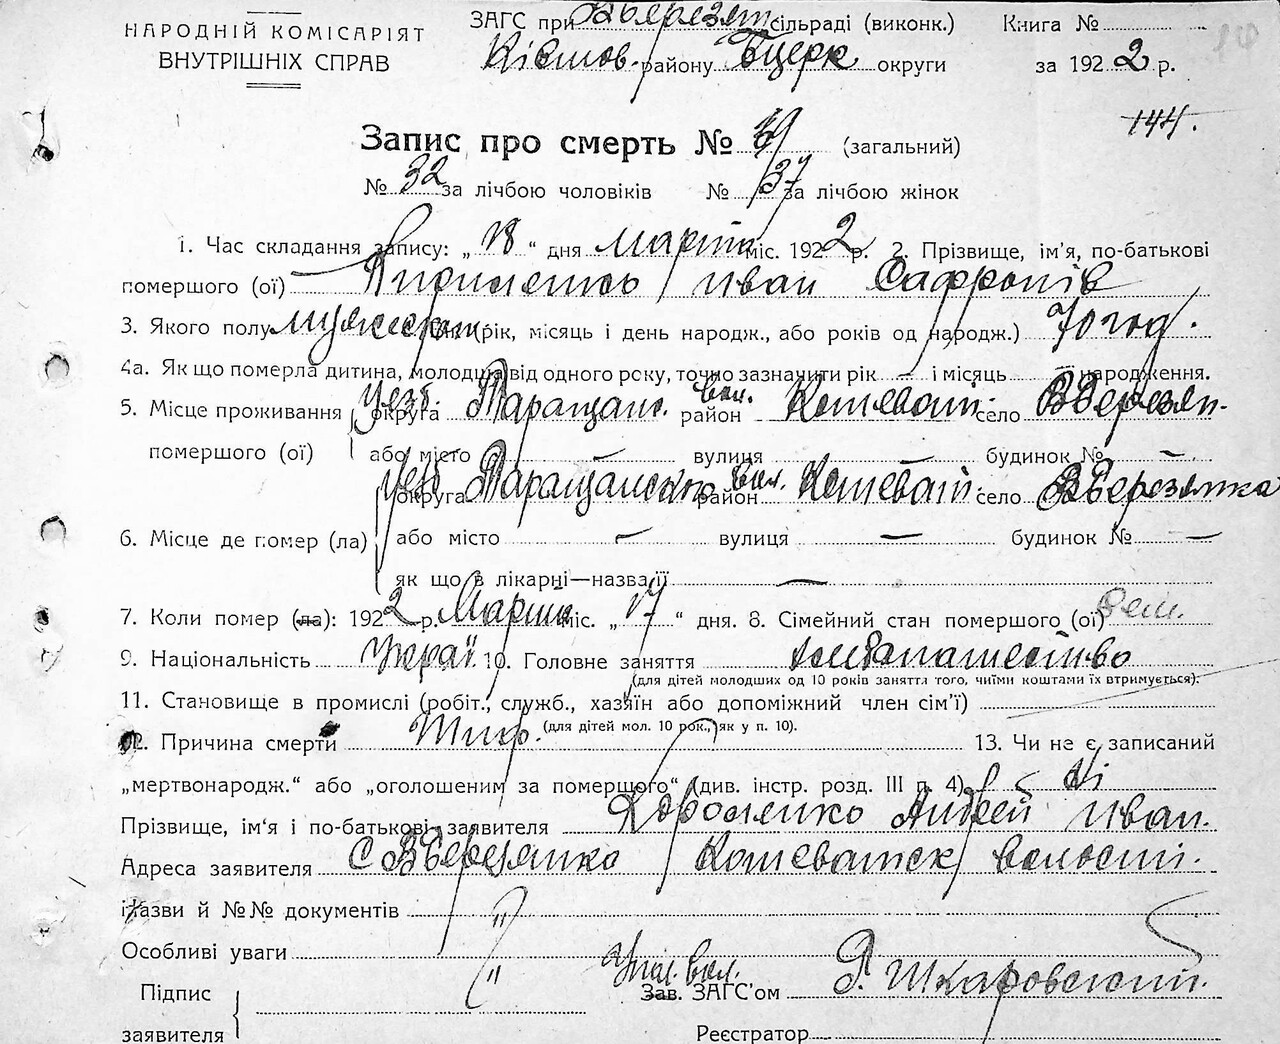 НАРОДНІЙ КОМІСАРІЯТ
ВНУТРІШНІХ СПРАВ
ЗАГС при ВБерезян сільраді (виконк.) Книга №
району Бцерк округи за 1922 р.
144.
Запис про смерть № 69 (загальний)
№ 32 за лічбою чоловіків № 37 за лічбою жінок
1. Час складання запису: „18“ дня Марта міс. 1922 р. 2. Прізвище, ім’я, по-батькові
помершого (ої) Иван Сафронів
3. Якого полу мужеск (рік, місяць і день народж., або років од народж.) 70 год.
4а. Як що померла дитина, молодша від одного року, точно зазначити рік — і місяць — народження.
5. Місце проживання округа уезб. Таращанс. район вол. Кошеват. село ВБерезян.
помершого (ої) або місто — вулиця — будинок № —
округа уезб Таращанско район вол. Кошеват. село ВБерезянка
6. Місце де помер (ла) або місто — вулиця — будинок № —
як що в лікарні—назва її —
7. Коли помер (ла): 1922 р. Марта міс. „17“ дня. 8. Сімейний стан помершого (ої)
9. Національність Украї 10. Головне заняття хлебапашество
(для дітей молодших од 10 років заняття того, чиїми коштами їх втримується).
11. Становище в промислі (робіт., служб., хазяїн або допоміжний член сім’ї)
(для дітей мол. 10 рок., як у п. 10).
12. Причина смерти Тиф. 13. Чи не є записаний
„мертвонародж.“ або „оголошеним за помершого“ (див. інстр. розд. III п. 4) Ні
Прізвище, ім’я і по-батькові заявителя Андрей Иван.
Адреса заявителя с ВБерезянко Кошеватск волости.
Назви й №№ документів "
Особливі уваги "
Підпис
заявителя
вол.
Зав. ЗАГС’ом Шкаровский.
Реєстратор